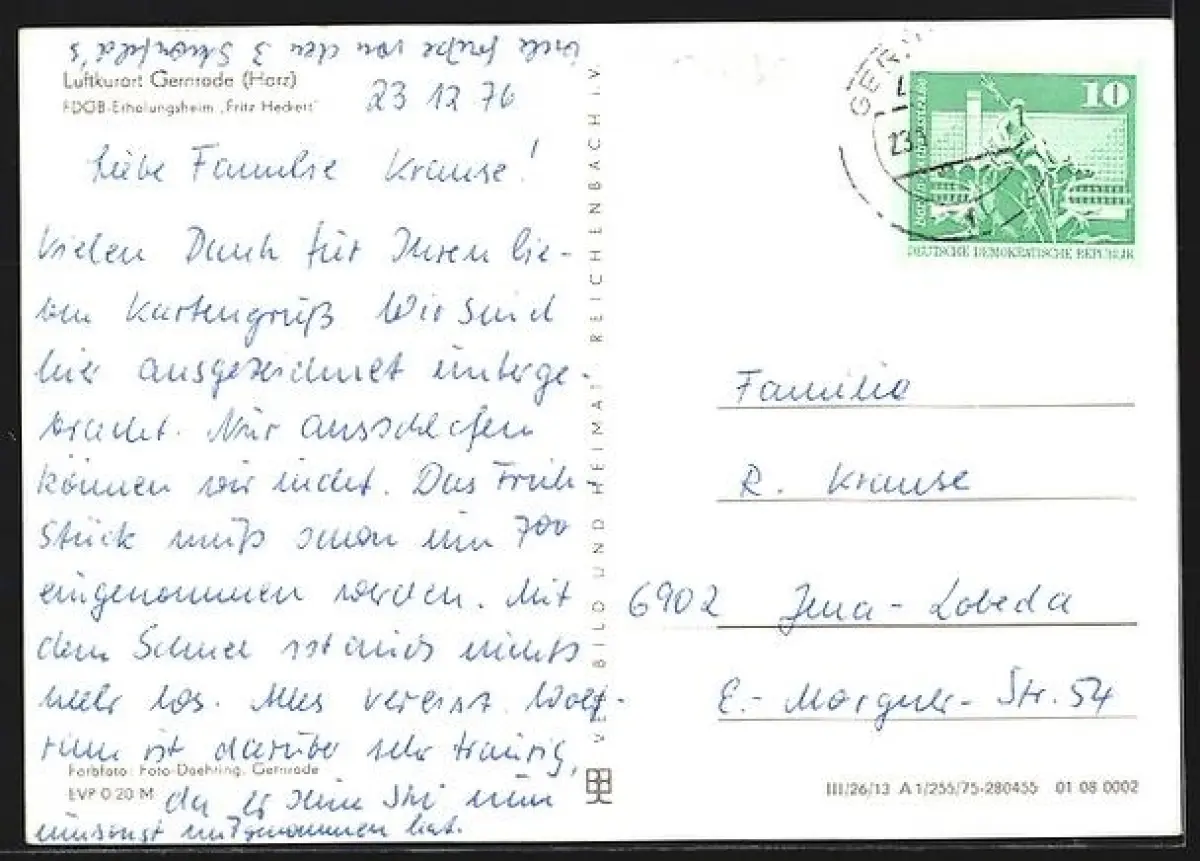 viele Grüße von den 3 Schönfeld's
Luftkurort Gernrode (Harz)
FDGB-Erholungsheim „Fritz Heckert"
23 12 76
Liebe Familie Krause!
Vielen Dank für Ihren lie-
ben Kartengruß Wir sind
hier ausgezeichnet unterge-
bracht. Nur ausschlafen
können wir nicht. Das Früh-
stück muß schon um 700
eingenommen werden. Mit
dem Schnee ist auch nichts
mehr los. Alles vereist. Wolf-
ram ist darüber sehr traurig,
da er seine Ski nun
umsonst mitgenommen hat.
Farbfoto: Foto-Daehring, Gernrode
EVP 0.20 M
VEB BILD UND HEIMAT REICHENBACH I. V.
GER
23
10
DEUTSCHE DEMOKRATISCHE REPUBLIK
Familie
R. Krause
6902 Jena-Lobeda
E.-Morgner-Str. 54
III/26/13 A 1/255/75-280455 01 08 0002